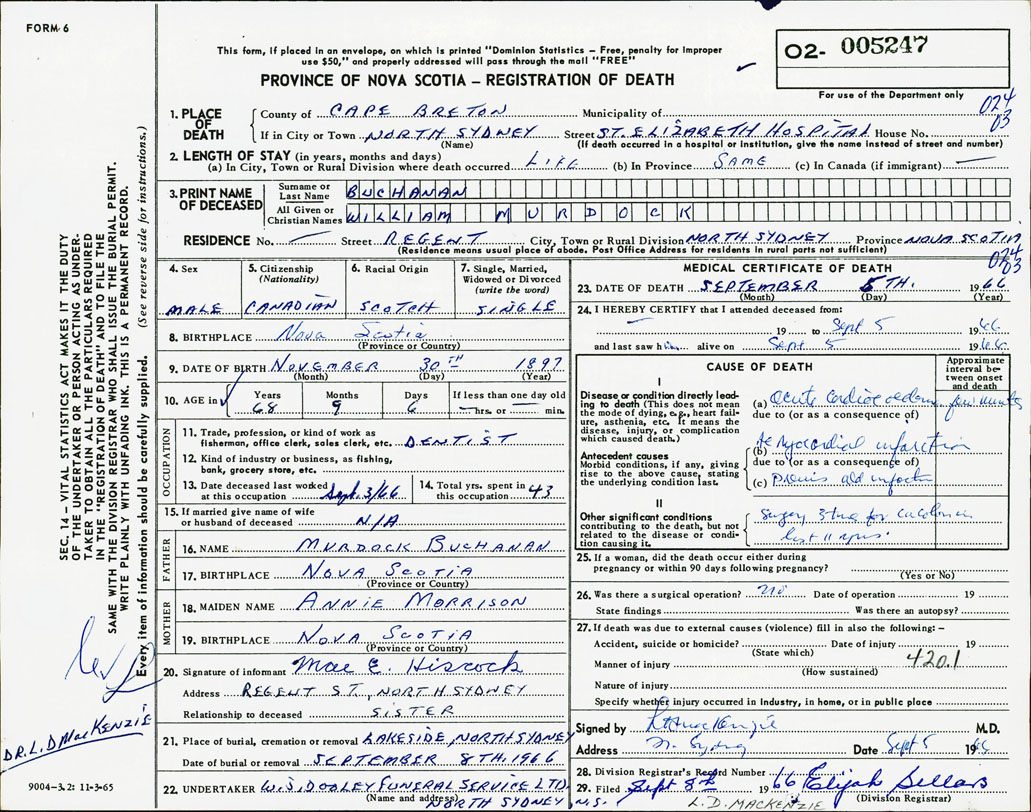 FORM 6
This form, if placed in an envelope, on which is printed "Dominion Statistics – Free, penalty for improper
use $50," and properly addressed will pass through the mail "FREE"
PROVINCE OF NOVA SCOTIA – REGISTRATION OF DEATH
O2- 005247
For use of the Department only
024
03
1. PLACE OF DEATH
County of CAPE BRETON Municipality of
If in City or Town NORTH SYDNEY Street ST. ELIZABETH HOSPITAL House No.
(Name) (If death occurred in a hospital or institution, give the name instead of street and number)
2. LENGTH OF STAY (in years, months and days)
(a) In City, Town or Rural Division where death occurred LIFE (b) In Province SAME (c) In Canada (if immigrant) —
3. PRINT NAME OF DECEASED
Surname or Last Name BUCHANAN
All Given or Christian Names WILLIAM MURDOCK
RESIDENCE No. — Street REGENT City, Town or Rural Division NORTH SYDNEY Province NOVA SCOTIA
(Residence means usual place of abode. Post Office Address for residents in rural parts not sufficient)
024
03
4. Sex
MALE
5. Citizenship (Nationality)
CANADIAN
6. Racial Origin
SCOTCH
7. Single, Married, Widowed or Divorced (write the word)
SINGLE
8. BIRTHPLACE Nova Scotia
(Province or Country)
9. DATE OF BIRTH NOVEMBER 30TH 1897
(Month) (Day) (Year)
10. AGE in Years Months Days If less than one day old
68 9 6 — hrs. or — min.
OCCUPATION
11. Trade, profession, or kind of work as
fisherman, office clerk, sales clerk, etc. DENTIST
12. Kind of industry or business, as fishing,
bank, grocery store, etc.
13. Date deceased last worked
at this occupation Sept. 3/66
14. Total yrs. spent in
this occupation 43
15. If married give name of wife
or husband of deceased N/A
FATHER
16. NAME MURDOCK BUCHANAN
17. BIRTHPLACE NOVA SCOTIA
(Province or Country)
MOTHER
18. MAIDEN NAME ANNIE MORRISON
19. BIRTHPLACE NOVA SCOTIA
(Province or Country)
20. Signature of informant Mae E. Hiscock
Address REGENT ST., NORTH SYDNEY
Relationship to deceased SISTER
21. Place of burial, cremation or removal LAKESIDE, NORTH SYDNEY
Date of burial or removal SEPTEMBER 8TH. 1966
22. UNDERTAKER W.J. DOOLEY FUNERAL SERVICE LTD.
(Name and address) NORTH SYDNEY N.S.
MEDICAL CERTIFICATE OF DEATH
23. DATE OF DEATH SEPTEMBER 5TH. 1966
(Month) (Day) (Year)
24. I HEREBY CERTIFY that I attended deceased from:
— 19 to Sept 5 1966
and last saw him alive on Sept. 5 1966
CAUSE OF DEATH
Approximate interval between onset and death
I
Disease or condition directly leading to death (This does not mean the mode of dying, e.g., heart failure, asthenia, etc. It means the disease, injury, or complication which caused death.)
(a) acute cardiac oedema few minutes
due to (or as a consequence of)
Antecedent causes
Morbid conditions, if any, giving rise to the above cause, stating the underlying condition last.
(b) myocardial infarction
due to (or as a consequence of)
(c) Previous old infarction
II
Other significant conditions contributing to the death, but not related to the disease or condition causing it.
Surgery for
last
25. If a woman, did the death occur either during
pregnancy or within 90 days following pregnancy?
(Yes or No)
26. Was there a surgical operation? no Date of operation 19
State findings Was there an autopsy?
27. If death was due to external causes (violence) fill in also the following: –
Accident, suicide or homicide? Date of injury 19
(State which)
Manner of injury 420.1
(How sustained)
Nature of injury
Specify whether injury occurred in industry, in home, or in public place
Signed by L.D. MacKenzie M.D.
Address N. Sydney Date Sept 5 1966
28. Division Registrar's Record Number
29. Filed Sept 8th 1966 Elijah Sellars
(Division Registrar)
L.D. MACKENZIE
SEC. 14 – VITAL STATISTICS ACT MAKES IT THE DUTY
OF THE UNDERTAKER OR PERSON ACTING AS UNDER-
TAKER TO OBTAIN ALL THE PARTICULARS REQUIRED
IN THE "REGISTRATION OF DEATH" AND TO FILE THE
SAME WITH THE DIVISION REGISTRAR WHO SHALL ISSUE THE BURIAL PERMIT.
WRITE PLAINLY WITH UNFADING INK. THIS IS A PERMANENT RECORD.
Every item of information should be carefully supplied. (See reverse side for instructions.)
DR. L. D MacKENZIE
9004-3.2: 11-3-65